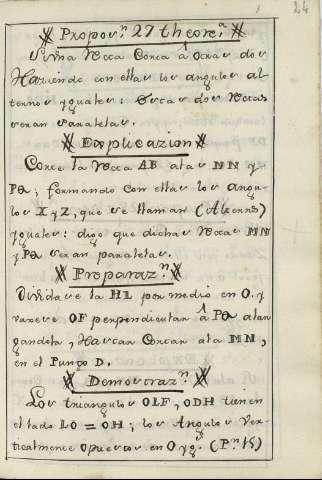 24
Propos.n 27 theore.a
Si una recca Corca à Ocras dos
Haziendo con ellas los angulos al
ternos yguales: Escas dos reccas
seran paralelas.
Explicazion
Corce la recca AB alas MN y
PQ; formando con ellas los angu-
los X y Z, que se llaman (Alternos)
yguales: digo que dichas reccas MN
y PQ seran paralelas.
Preparaz.n
Dividase la HL por medio en O. y
saxese OF perpendicular à PQ alar
gandola, Hascan Corcan ala MN,
en el Punco D.
Demoscraz.n
Los triangulos OLF, ODH tienen
el lado LO = OH; los Angulos Ver-
ticalmente opuescos en O yg.s (P.n 15)